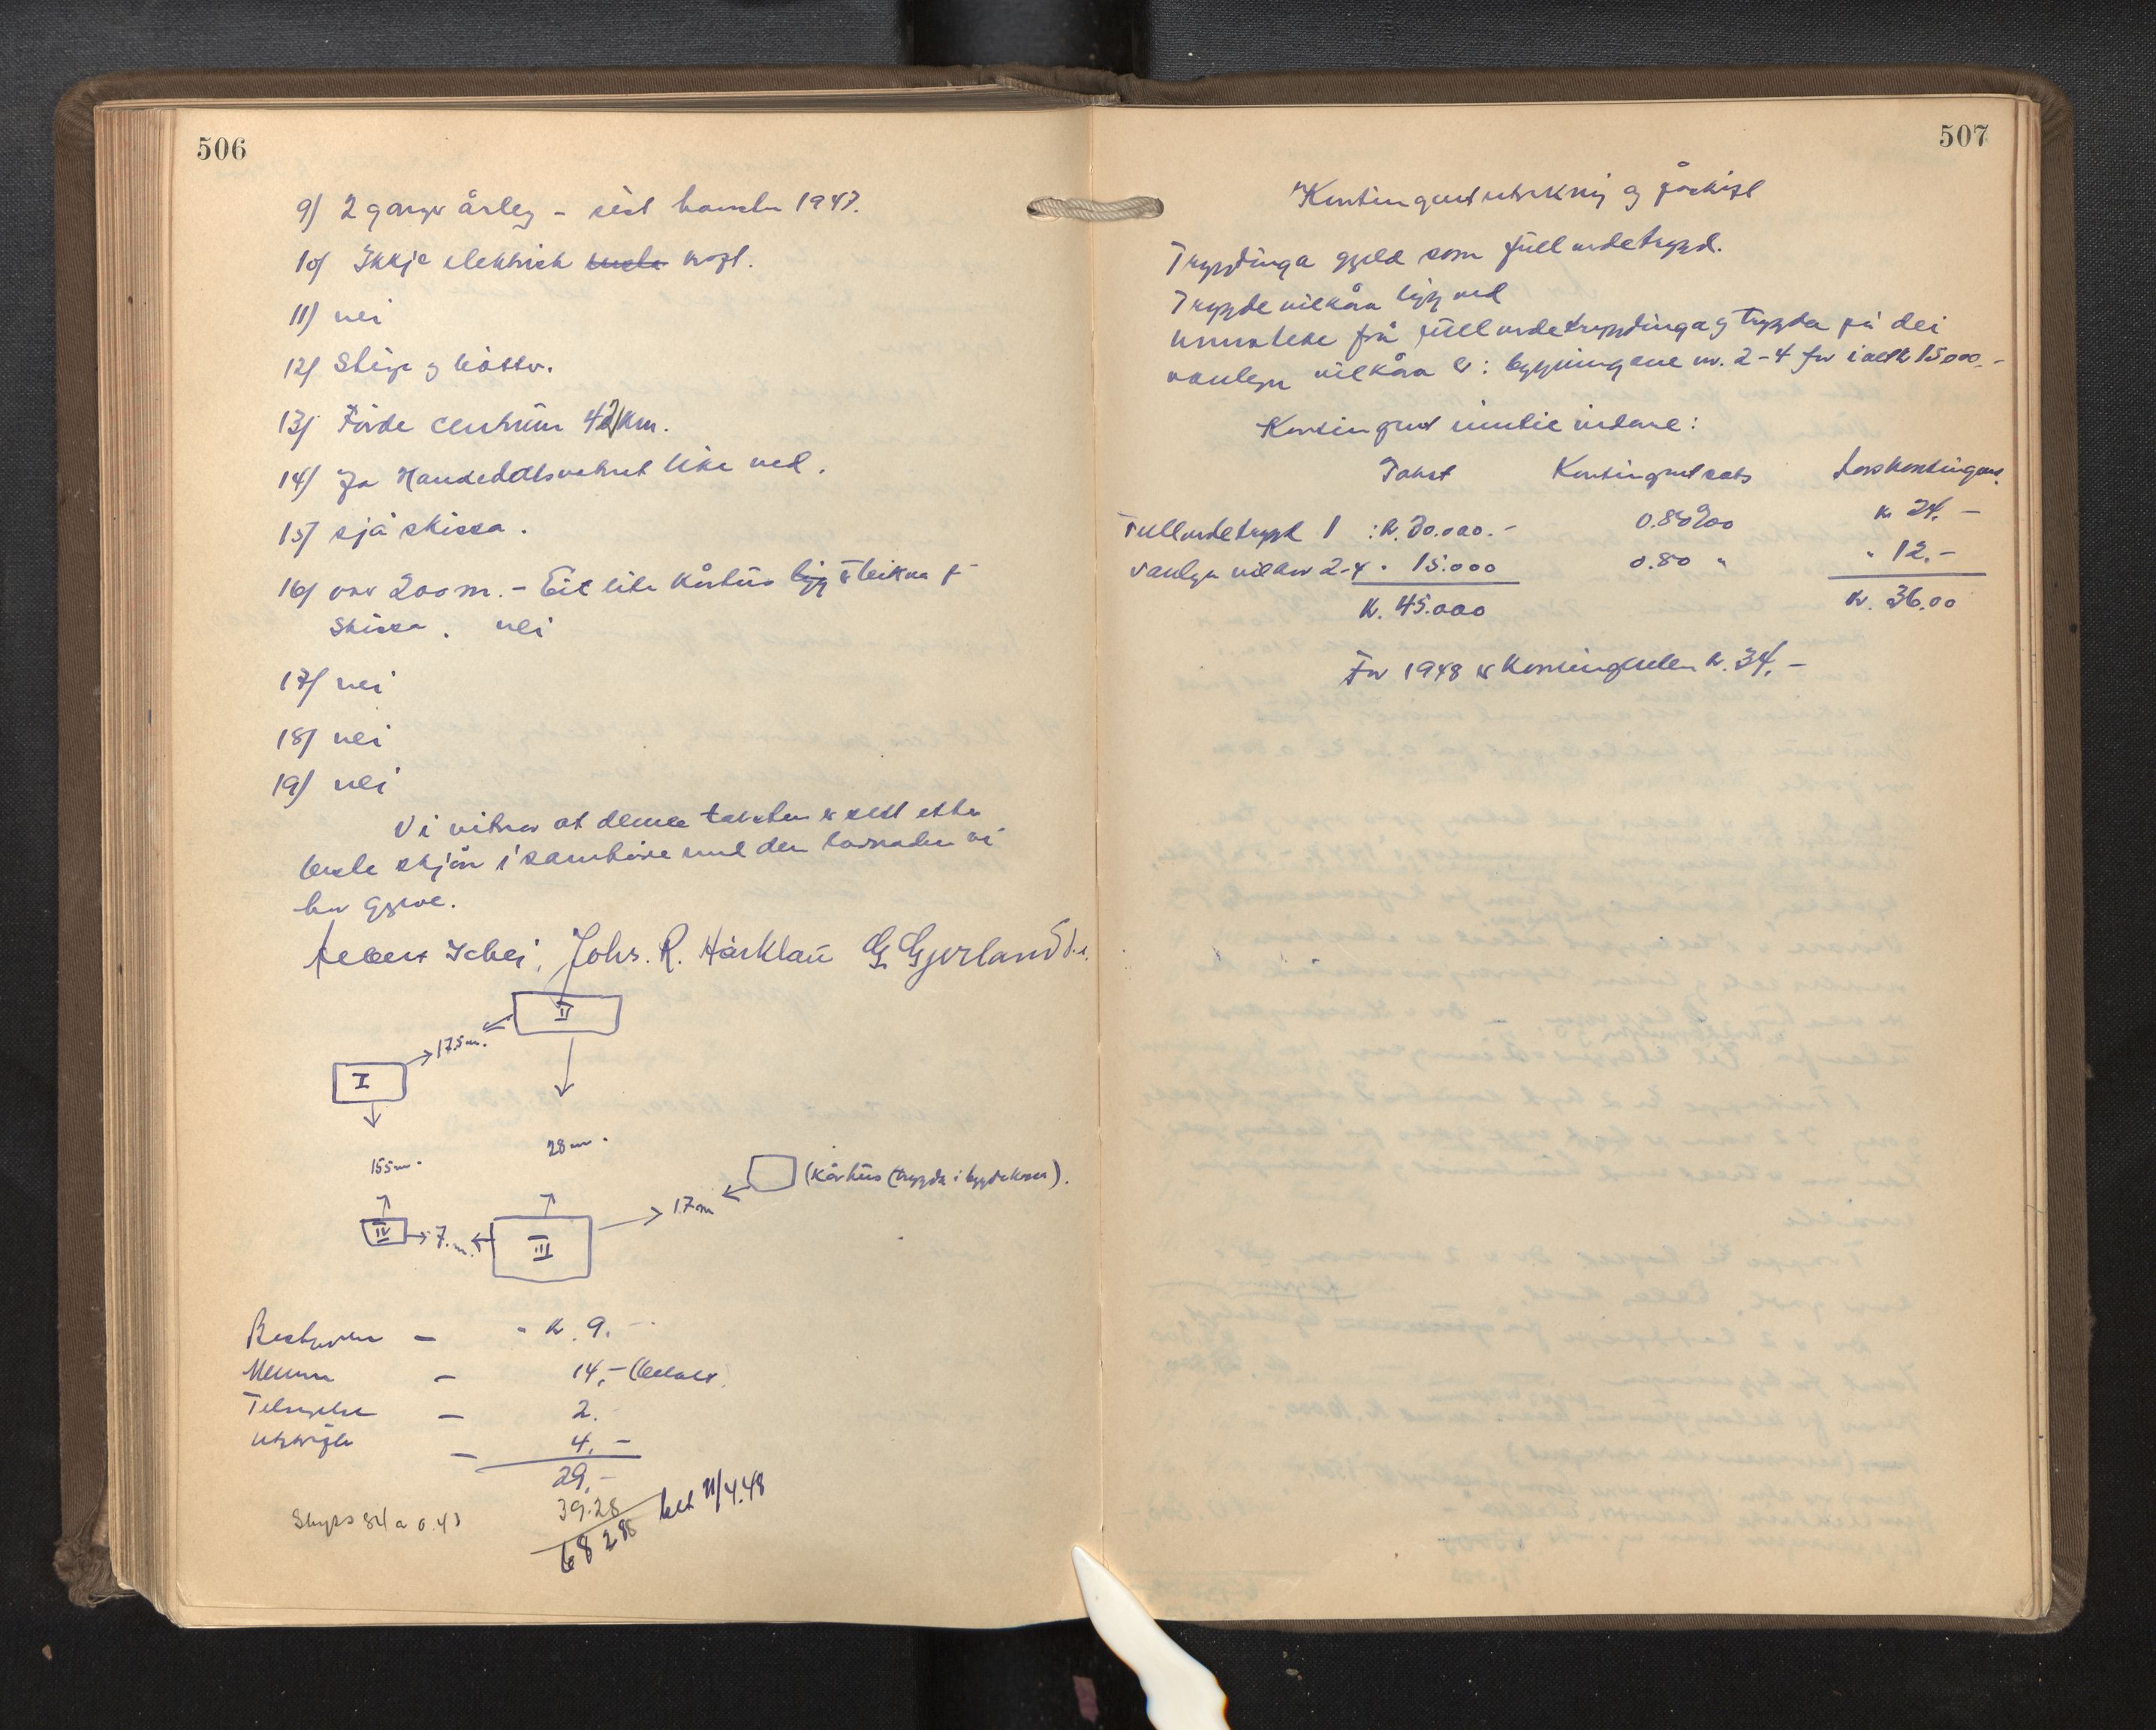 506
9) 2 gangr årleg - sist hausten 1947.
10) Ikkje elektrisk kraft.
11) nei
12) Stige og bøtter.
13) Førde centrum 42 km.
14) Ja Haukedalsvatnet like ved.
15) sjå skissa.
16) over 200 m. - Eit lite Kårhus er teikna på
skissa. nei
17) nei
18) nei
19) nei
Vi vitnar at denne taksten er sett etter
beste skjøn i samhøve med den lovnaden vi
har gjeve.
Johs. R. Hårklau G. Gjerland
II
17.5 m.
I
28 m.
155 m.
(Kårhus (trygda i bygdekassa).
17 m
IV
7. m.
III
Bestyrar — kr. 9.-
Menn — 14,- (betalt)
— 2.-
Utskrift — 4,-
29,-
Skyss 84 a 0.43 39.28
68 28 bet 21/4.48
507
Kontingentutrekning og påskift
Trygdinga gjeld som fullverdetrygd.
Trygdevilkåra ligg ved
Unnateke frå fullverdetrygdinga og trygda på dei
vanlege vilkåra er: bygningane nr. 2-4 for i alt kr 15000,-
Kontingent vidare:
Takst Kontingentsats Årskontingent
Fullverdetrygd 1 : kr. 30.000.- 0.80‰ kr 24,-
vanlege vilkår 2-4 " 15.000 0.80 " " 12.-
kr. 45.000 kr. 36.00
For 1948 er kontingenten kr. 34,-